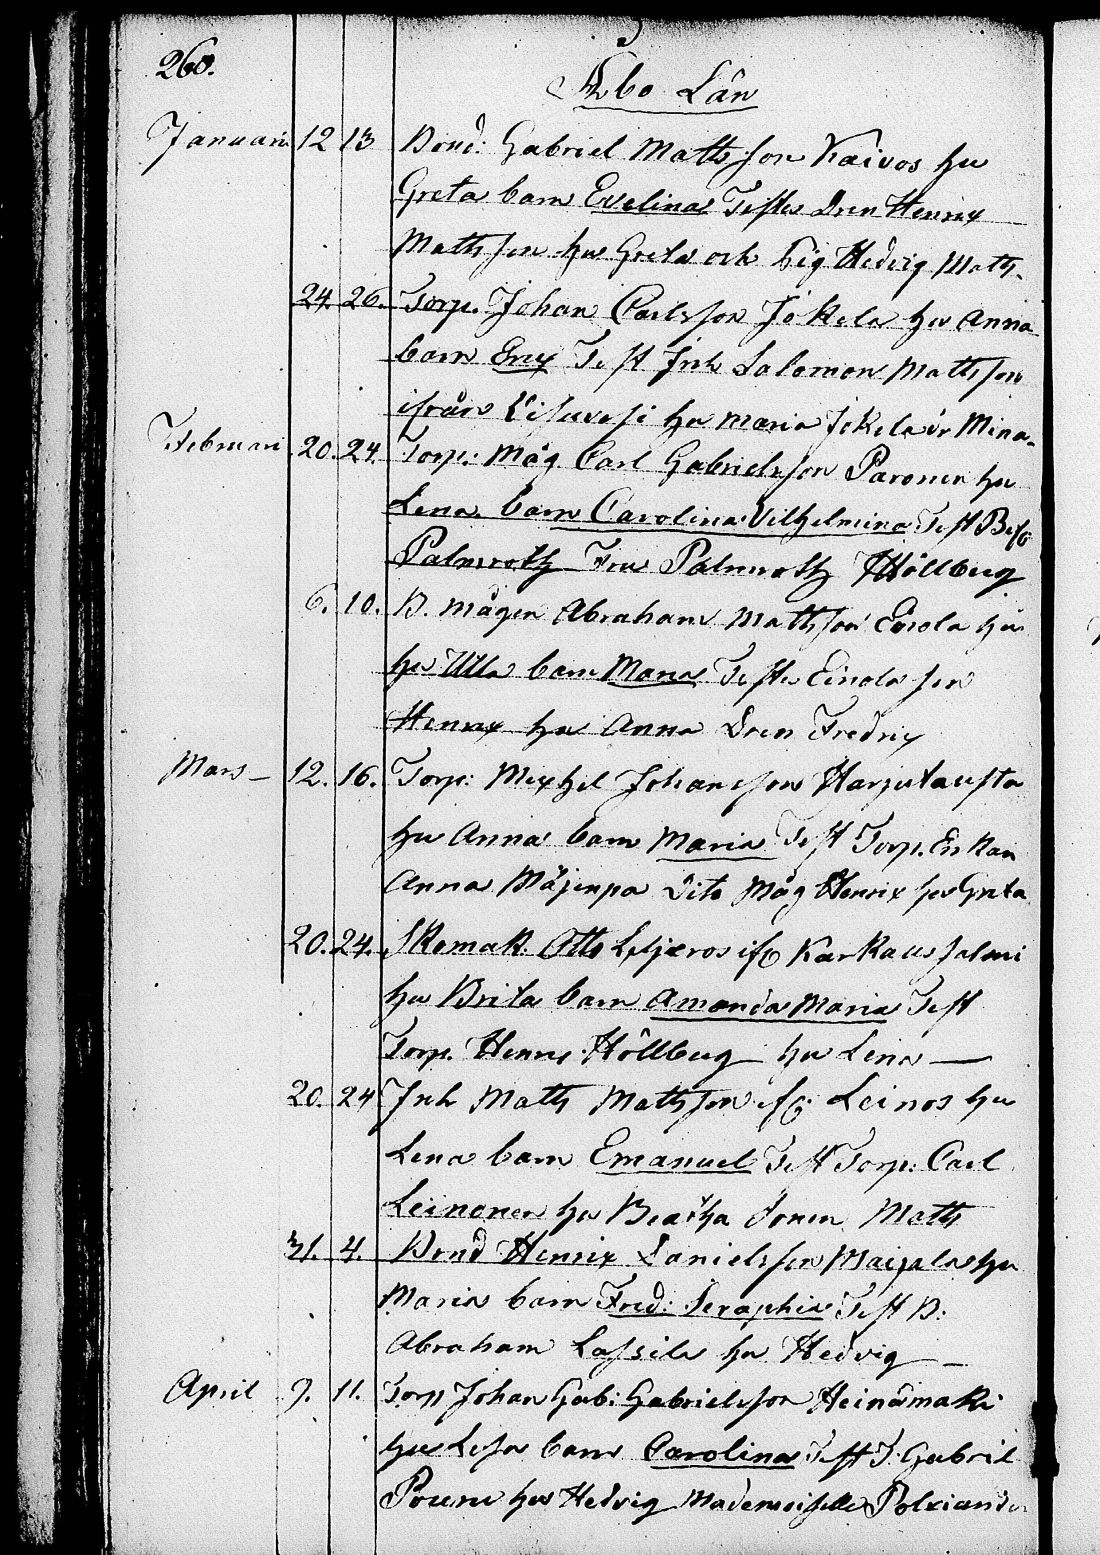 260.
Åbo Län
Januari 12 13 Bond: Gabriel Matts son Kaivos hu
Greta barn Evelina Testes Dren Henrix
Matts son hu Greta och Pig Hedvig Matts
24. 26. Torp. Johan Carlsson Jokela hu Anna
barn Erix Test Inh Salomon Mattsson
ifrån hu Maria Jokela ör Mina
Februari 20. 24. Torp: Måg Carl Gabrielsson Paronen hu
Lena barn Carolina Vilhelmina Test
Palmroth Fru Palmroth Höllberg
6. 10. B. Mågen Abraham Matsson Einola hu
hu Ulla barn Maria Testes Einola son
Henrix hu Anna Dren Fredrix
Mars 12. 16. Torp: Mixhel Johansson Harjutausta
hu Anna barn Maria Test Torp. Enkan
Anna Dito Måg Henrix hu Greta
20. 24. Skomak. Otto ifr Karkausjalmi
hu Brita barn Amanda Maria Test
Torp. Henrix Höllberg hu Lena
20. 24 Inh Matts Mattsson ifr: Leinos hu
Lena barn Emanuel Test Torp: Carl
Leinonen hu Beatha Sonen Matts
31. 4. Bond Henrix Danielsson Maijala hu
Maria barn Fred: Seraphia Test B:
Abraham Lassila hu Hedvig
April 9. 11. Torp Johan Gab: Gabrielsson Heinämaki
hu Lesa barn Carolina Test T. Gabriel
hu Hedvig Mademoiselle Polviander